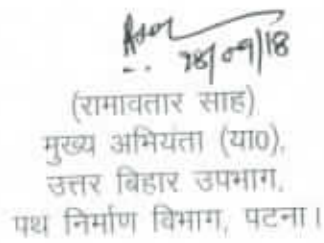 28/09/18
(रामावतार साह)
मुख्य अभियता (या०),
उत्तर बिहार उपभाग,
पथ निर्माण विभाग, पटना।